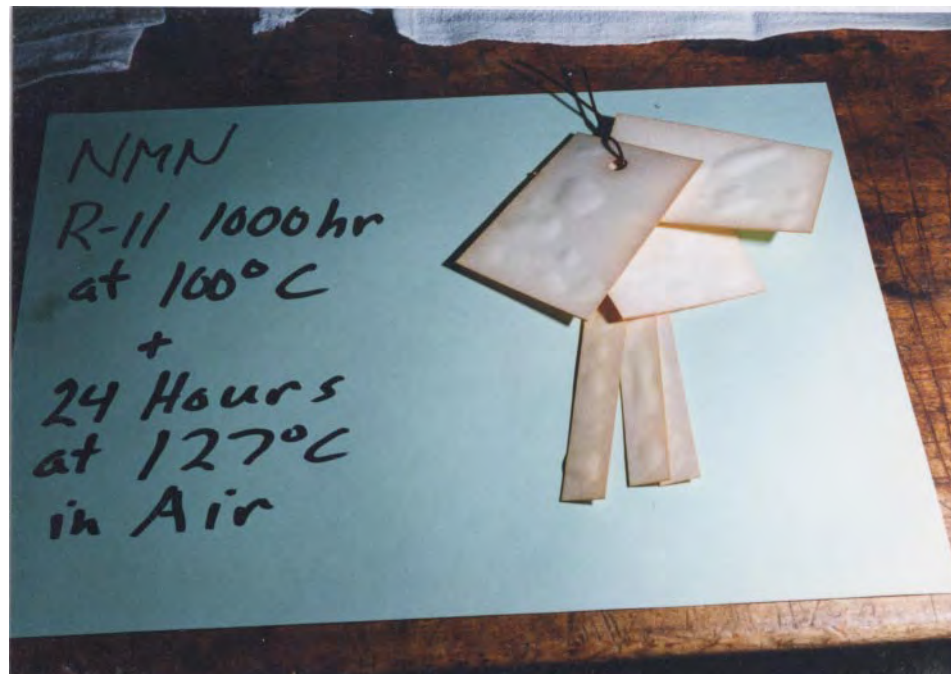 NMN
R-11 1000hr
at 100°C
+
24 Hours
at 127°C
in Air